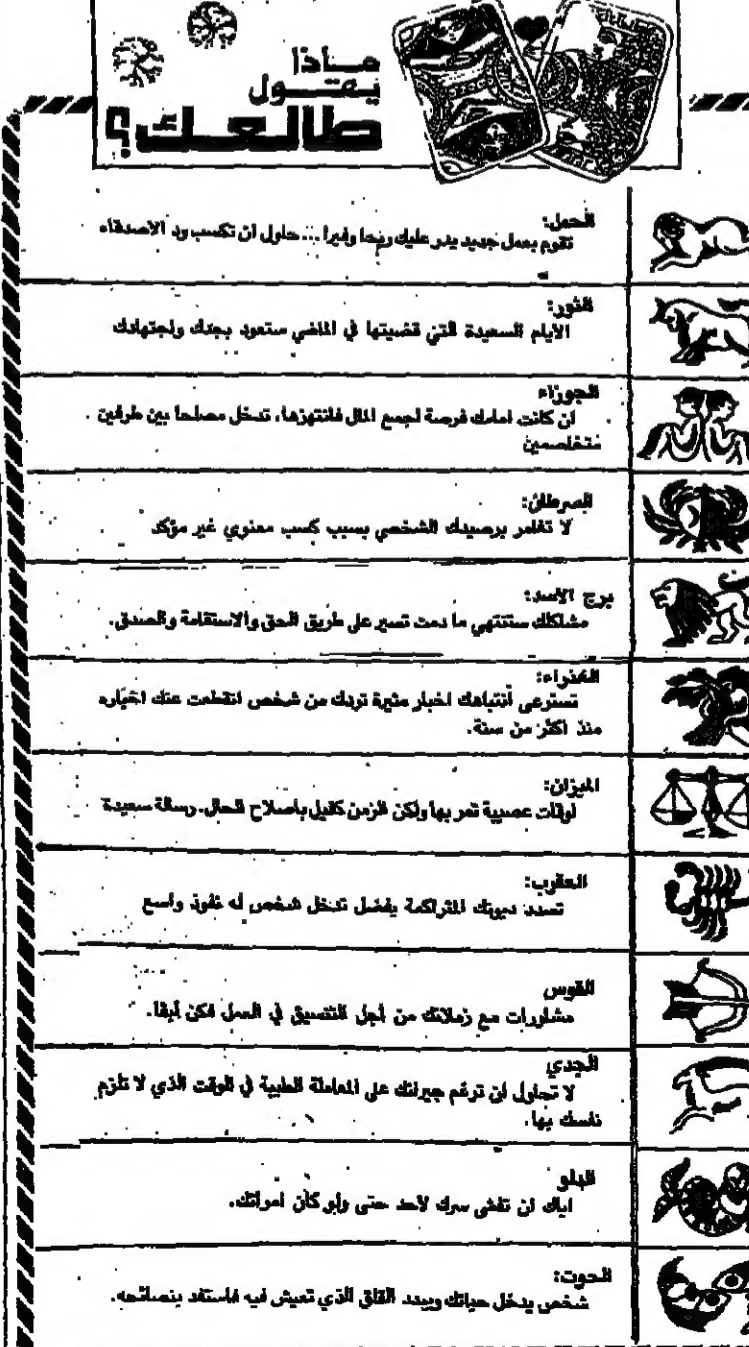 ماذا
يقول
طالعك؟
الحمل:
تقوم بعمل جديد يدر عليك ربحا وفيرا ... حاول ان تكسب ود الاصدقاء
الثور:
الايام السعيدة التي قضيتها في الماضي ستعود بجدك واجتهادك
الجوزاء
ان كانت امامك فرصة لجمع المال فانتهزها، تدخل مصلحا بين طرفين
متخاصمين
السرطان:
لا تغامر برصيدك الشخصي بسبب كسب معنوي غير مؤكد
برج الاسد:
مشاكلك ستنتهي ما دمت تسير على طريق الحق والاستقامة والصدق.
العذراء:
تسترعى أنتباهك اخبار مثيرة تردك من شخص انقطعت عنك اخباره
منذ اكثر من سنة.
الميزان:
اوقات عصيبة تمر بها ولكن الزمن كفيل باصلاح الحال. رسالة سعيدة
العقرب:
تسدد ديونك المتراكمة بفضل تدخل شخص له نفوذ واسع
القوس
مشاورات مع زملائك من أجل التنسيق في العمل فكن لبقا.
الجدي
لا تحاول ان ترغم جيرانك على المعاملة الطيبة في الوقت الذي لا تلزم
نفسك بها.
الدلو
اياك ان تفشى سرك لاحد حتى ولو كان امرأتك.
الحوت:
شخص يدخل حياتك ويبدد القلق الذي تعيش فيه فاستفد بنصائحه.